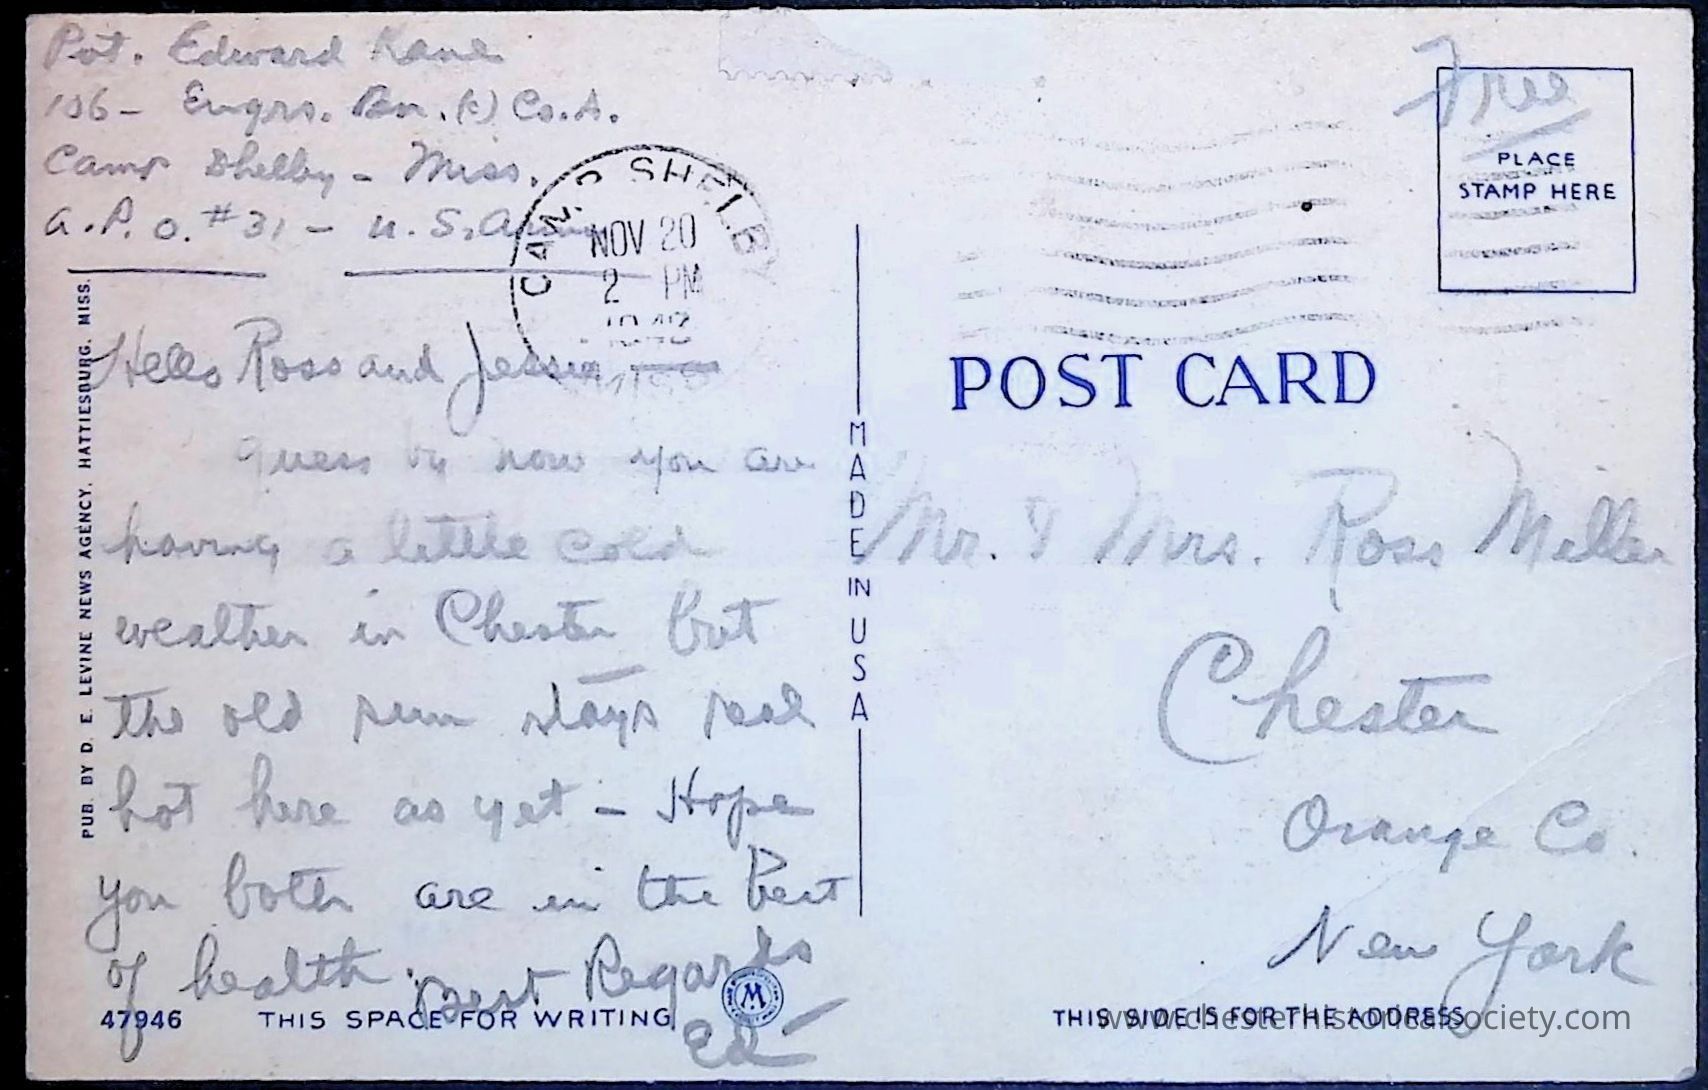 Pvt. Edward Kane
106- Engrs. Bn. (c) Co. A.
Camp Shelby - Miss.
A.P.O. #31 - U.S. Army
CAMP SHELBY
NOV 20
2 PM
MISS
Hello Ross and Jessie
Guess by now you are
having a little cold
weather in Chester but
the old sun stays real
hot here as yet - Hope
you both are in the best
of health. Best Regards
Ed
PUB. BY D. E. LEVINE NEWS AGENCY, HATTIESBURG, MISS.
47946
THIS SPACE FOR WRITING
M
MADE IN USA
Free
PLACE
STAMP HERE
POST CARD
Mr. & Mrs. Ross Miller
Chester
Orange Co.
New York
THIS SIDE IS FOR THE ADDRESS
www.chesterhistoricalsociety.com